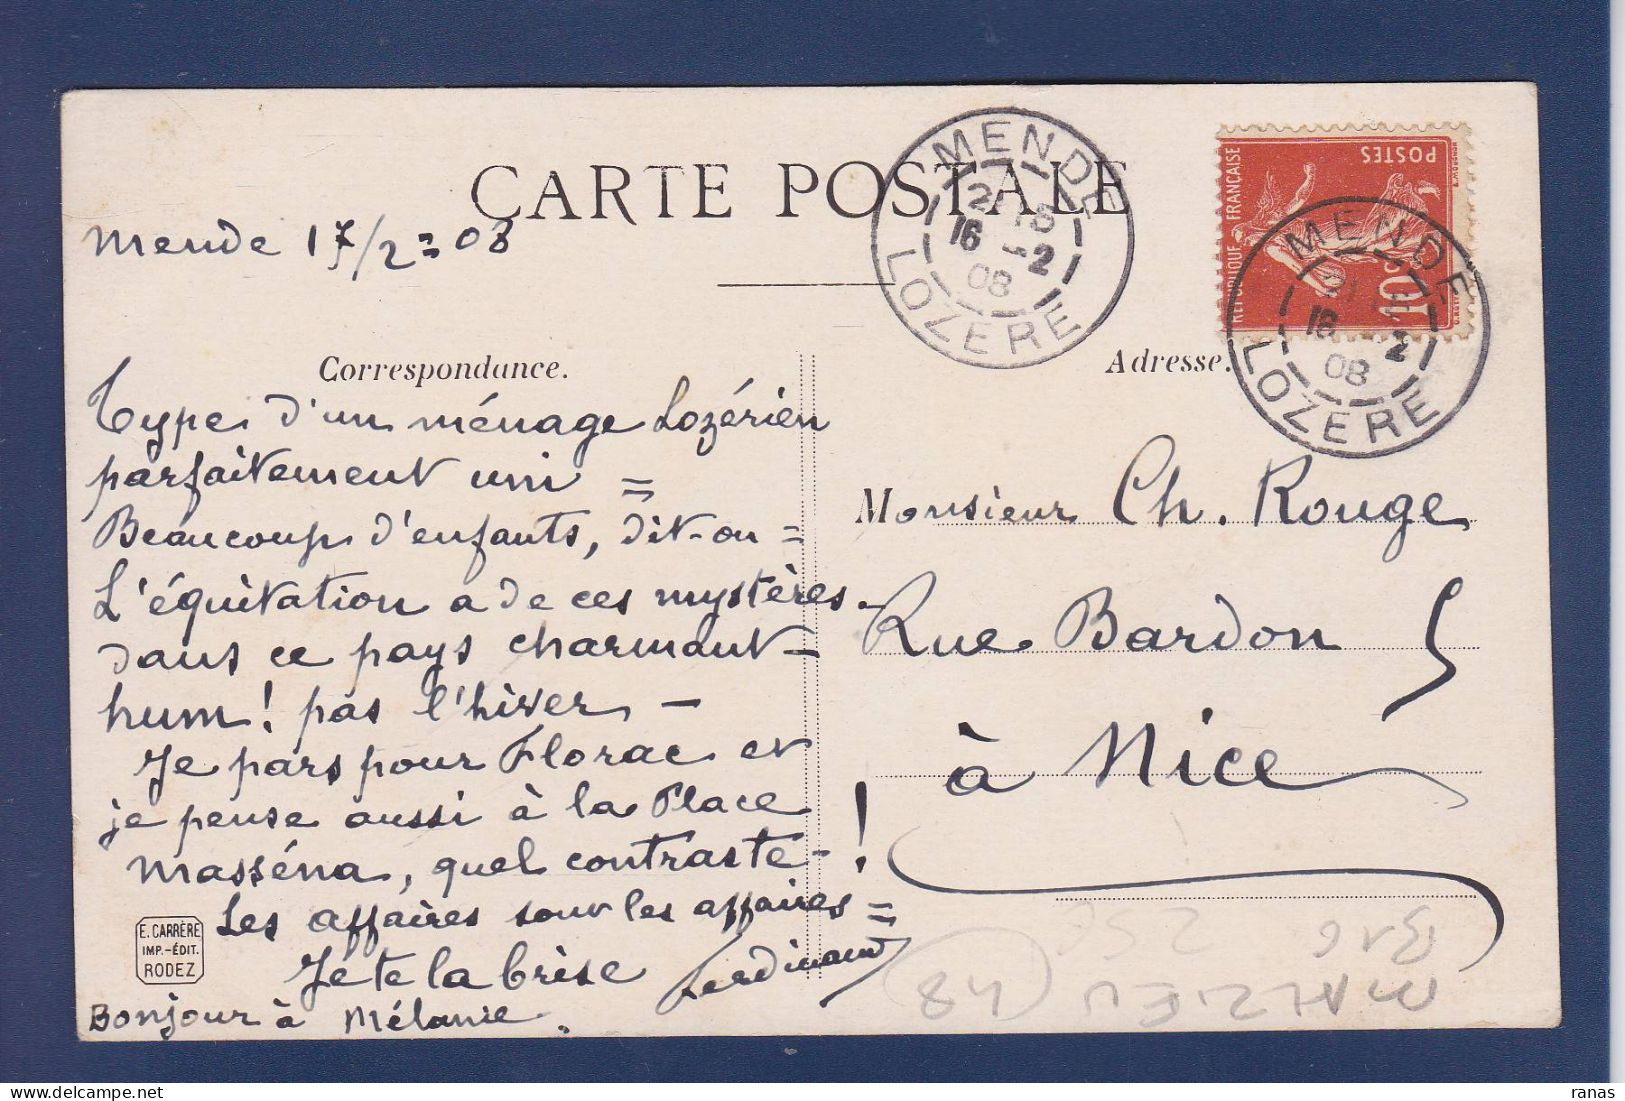 CARTE POSTALE
Mende 17/2 = 08
MENDE
21 18
16 - 2
08
LOZERE
POSTES
REPUBLIQUE FRANÇAISE
10
MENDE
21
16 2
08
LOZERE
Correspondance.
Adresse.
Type d'un ménage Lozérien
parfaitement uni =
Beaucoup d'enfants, dit-on =
L'équitation a de ces mystères
dans ce pays charmant -
hum! pas l'hiver -
Je pars pour Florac et
je pense aussi à la Place
Masséna, quel contraste - !
Les affaires sont les affaires =
Je te la brise Ferdinand
Bonjour à Mélanie.
Monsieur Ch. Rouge
Rue Bardon 5
à Nice
E. CARRÈRE
IMP.-ÉDIT.
RODEZ
B16 25€
MALZIEU (48)
delcampe.net
ranas